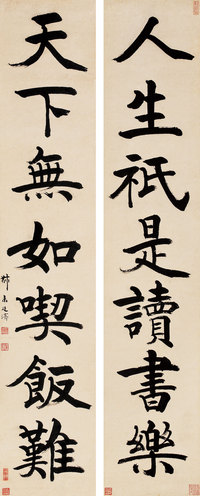 人生祇是讀書樂
天下無如喫飯難